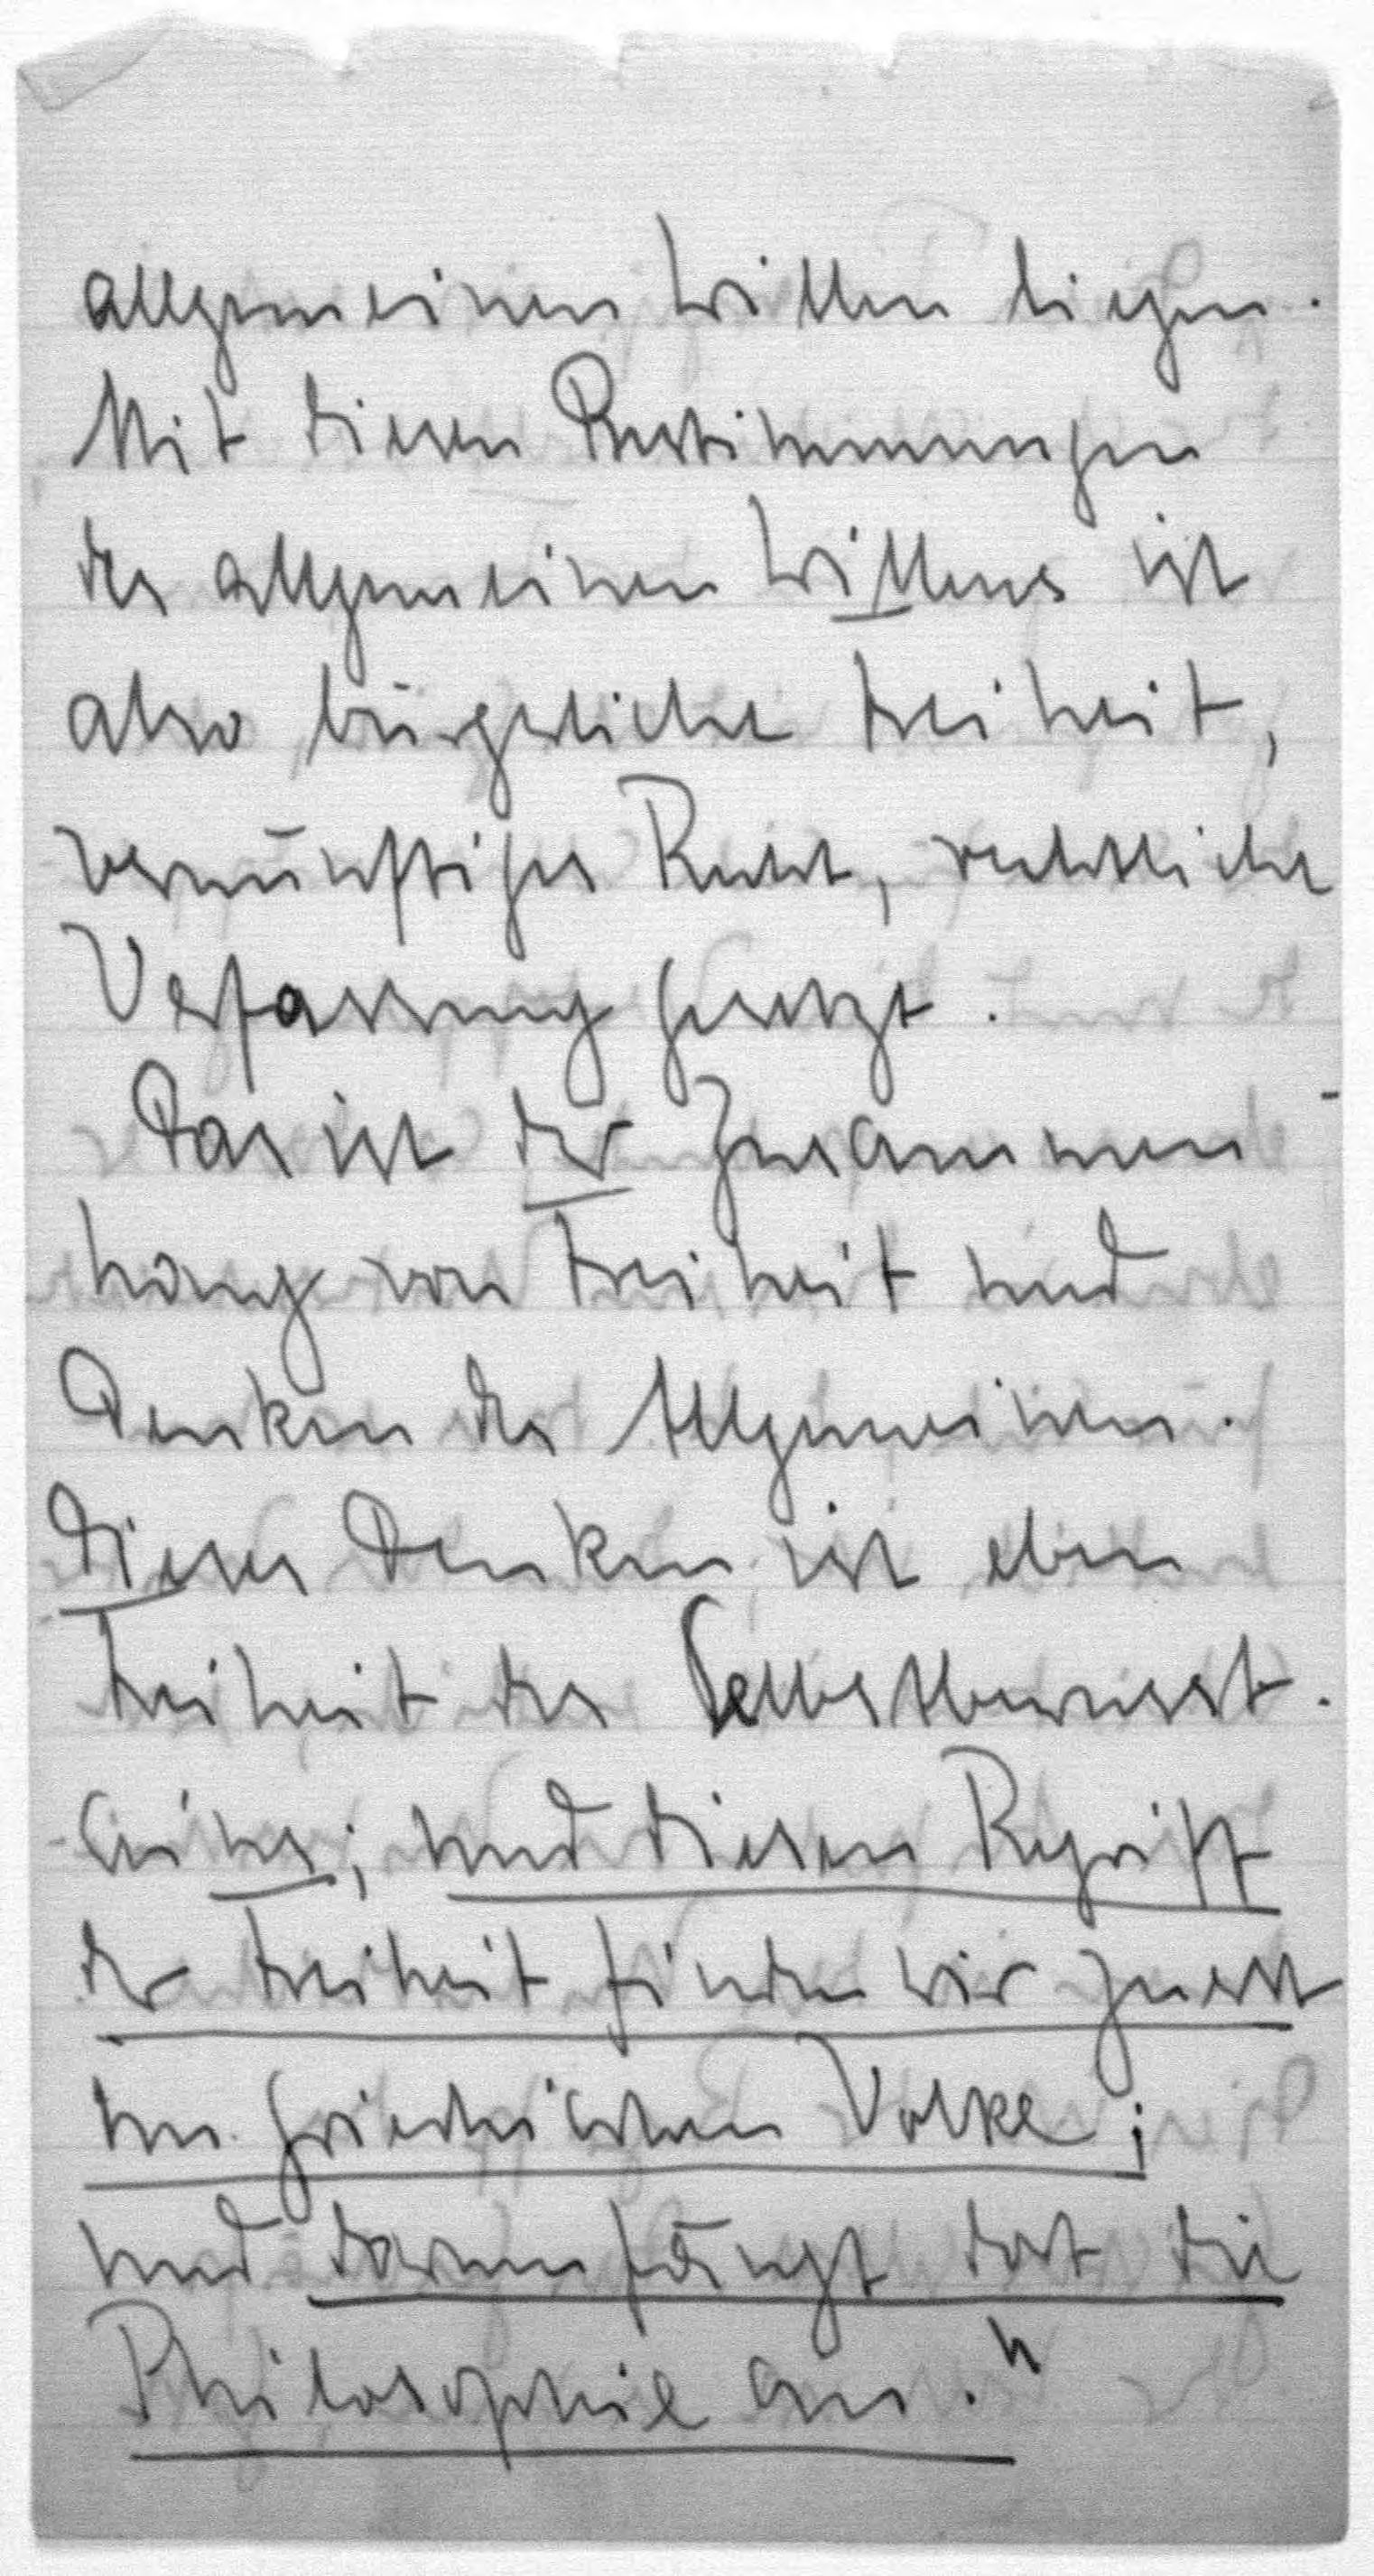 allgemeinen Willen liegen.
Mit diesen Bestimmungen
des allgemeinen Willens ist
also bürgerliche Freiheit,
vernünftiges Recht, rechtliche
Verfassung gesetzt.
Das ist der Zusammen-
hang von Freiheit und
Denken des Allgemeinen.
Dieses Denken ist eben
Freiheit des Selbstbewusst-
seins; und diesen Begriff
der Freiheit finden wir zuerst
im griechischen Volke;
und darum fängt dort die
Philosophie an."